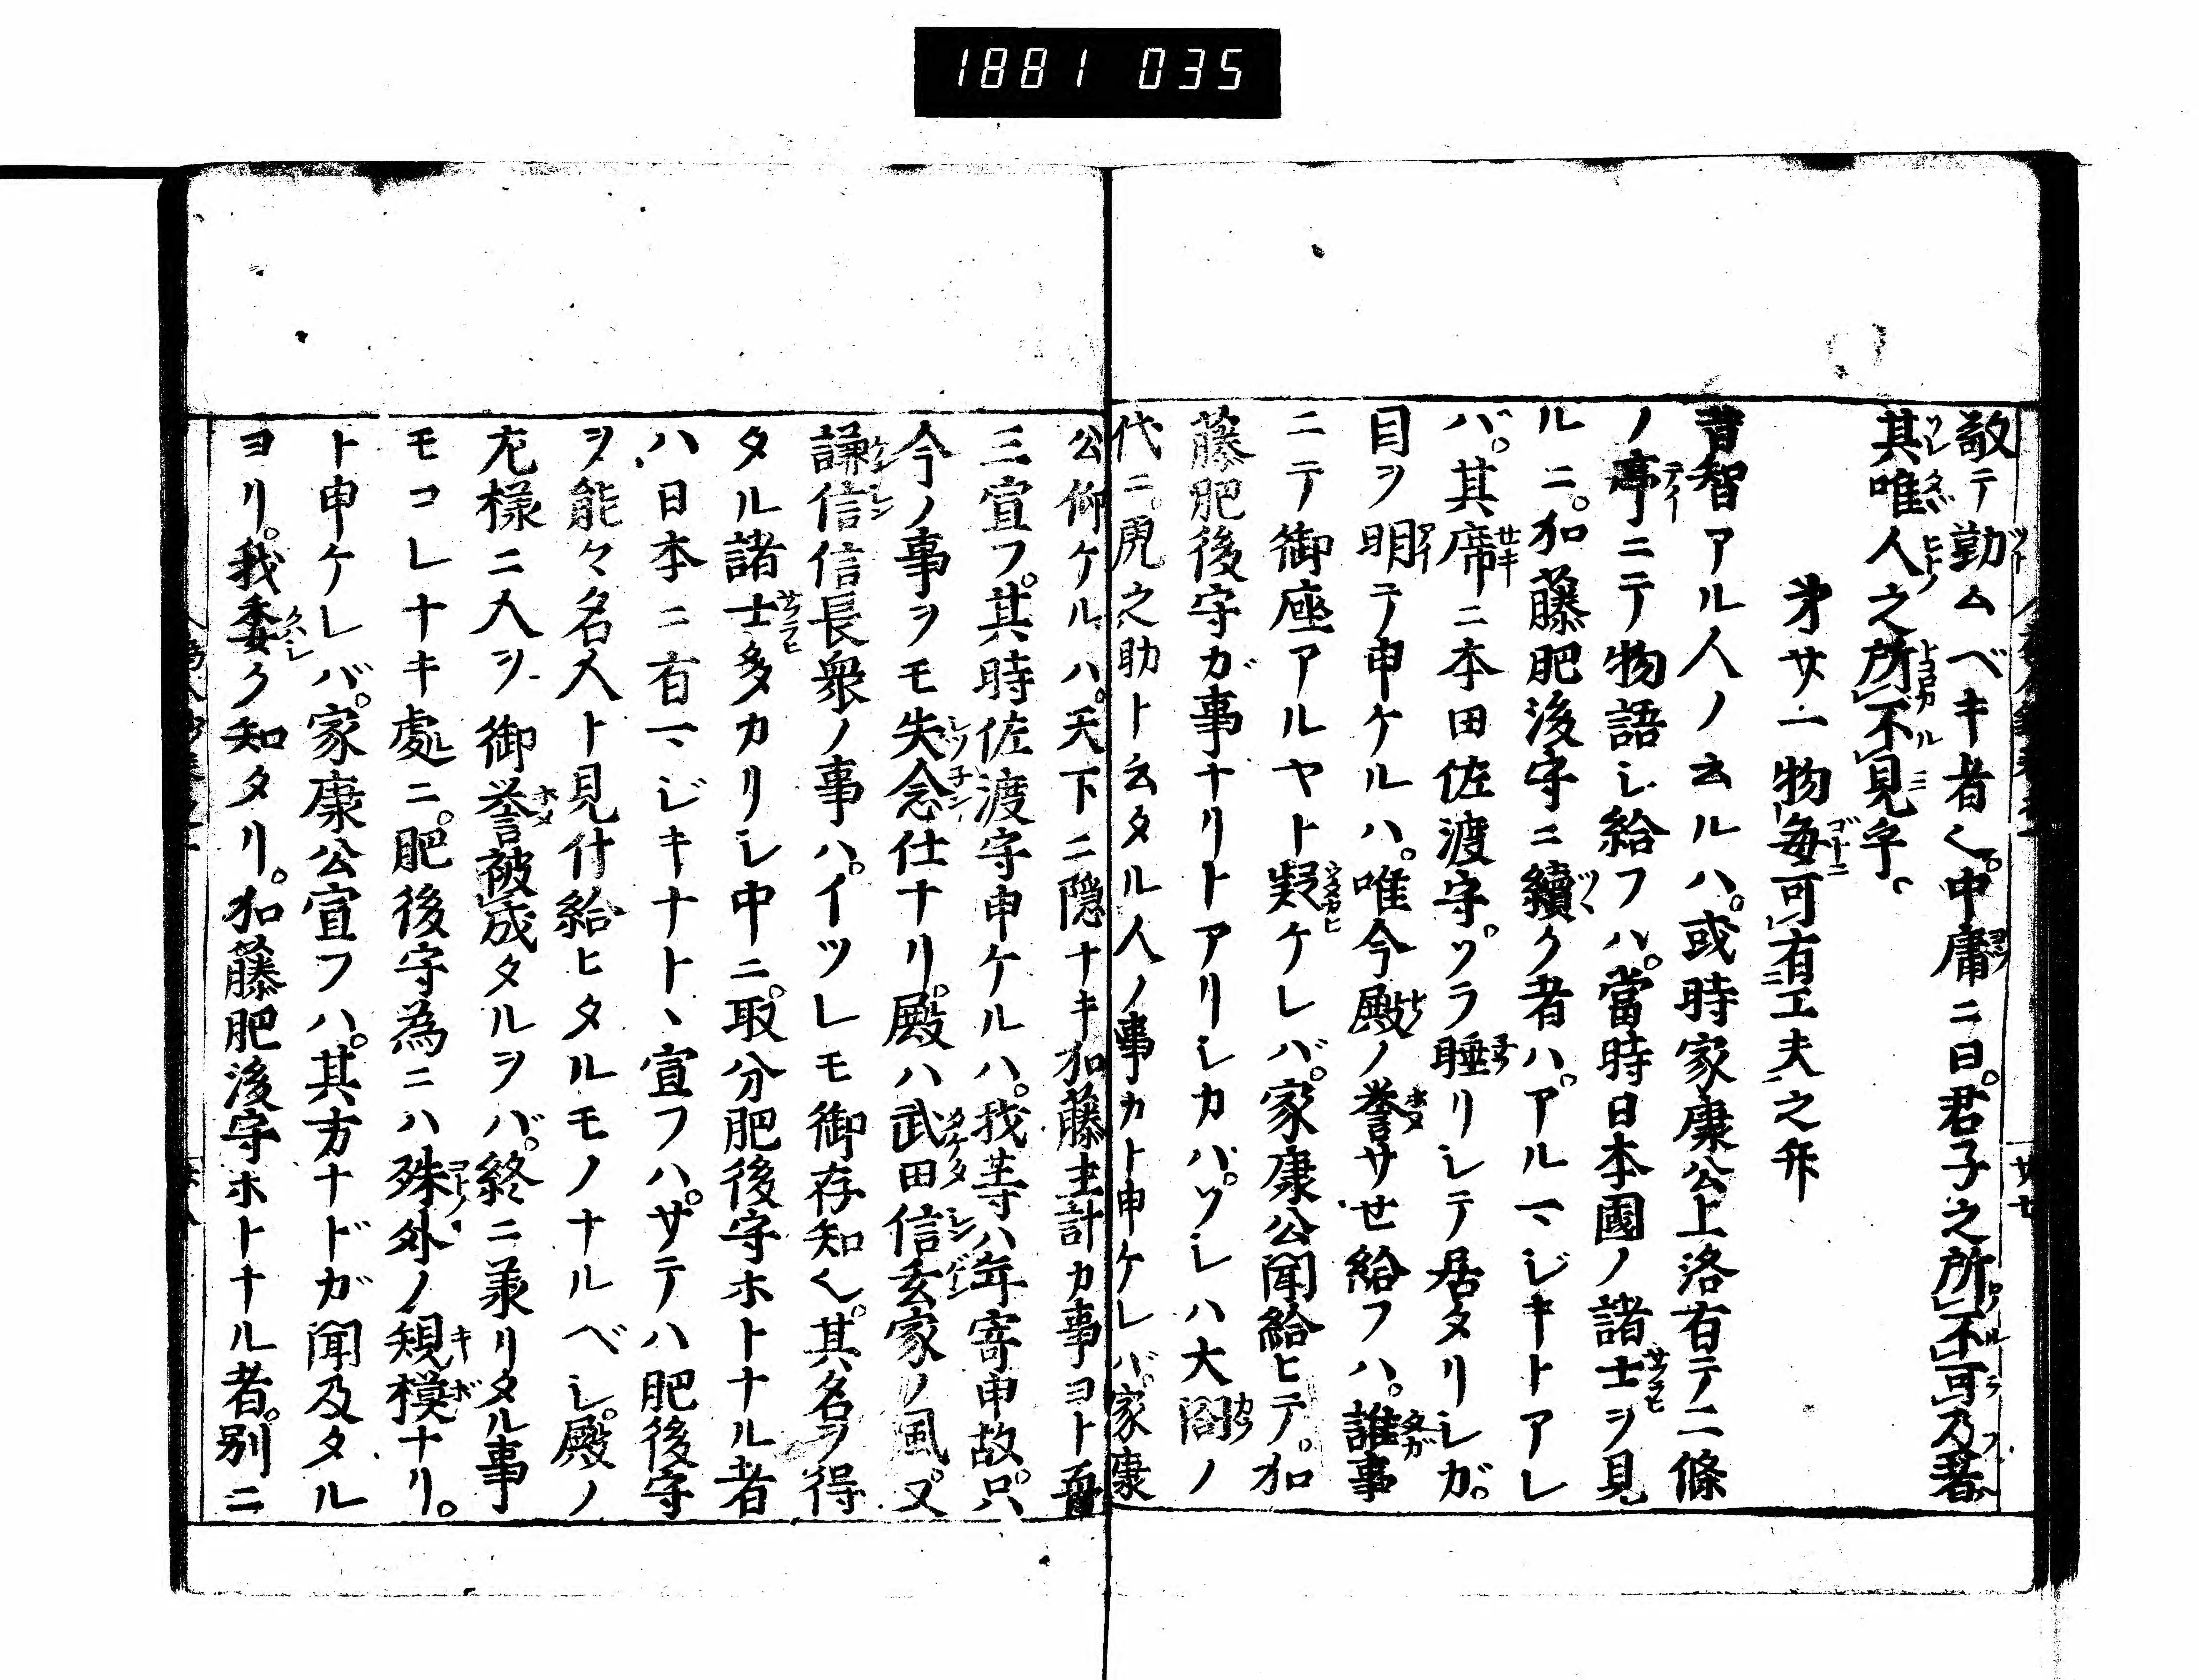 1881 035
敬テ勤ムベキ者也。中庸ニ曰。君子之所不可乃者
其唯人之所不見乎。
第廿一物毎可有工夫之弁
昔智アル人ノ云ルハ。或時家康公上洛有テ二條
ノ亭ニテ物語シ給フハ。當時日本國ノ諸士ヲ見
ルニ。加藤肥後守ニ續ク者ハ。アルマジキトアレ
バ。其席ニ本田佐渡守。ツラ睡リシテ居タリシガ。
目ヲ明テ申ケルハ。唯今殿ノ誉サセ給フハ。誰事
ニテ御座アルヤト疑ケレバ。家康公聞給ヒテ。加
藤肥後守ガ事ナリトアリシカバ。ソレハ大閤ノ
代ニ。虎之助ト云タル人ノ事カト申ケレバ。家康
公仰ケルハ。天下ニ隠ナキ加藤主計カ事ヨト
三宣フ。其時佐渡守申ケルハ。我等ハ年寄申故。只
今ノ事ヲモ失念仕ナリ。殿ハ武田信玄家ノ風。又
謙信信長衆ノ事ハ。イツレモ御存知也。其名ヲ得
タル諸士多カリシ中ニ。取分肥後守ホトナル者
ハ日本ニ有マジキナト、宣フハ。サテハ肥後守
ヲ能々名人ト見付給ヒタルモノナルベシ。殿ノ
左様ニ人ヲ御誉被成タルヲバ。終ニ承リタル事
モコレナキ處ニ。肥後守為ニハ殊外ノ規模ナリ。
ト申ケレバ。家康公宣フハ。其方ナドガ聞及タル
ヨリ。我委ク知タリ。加藤肥後守ホトナル者。別ニ